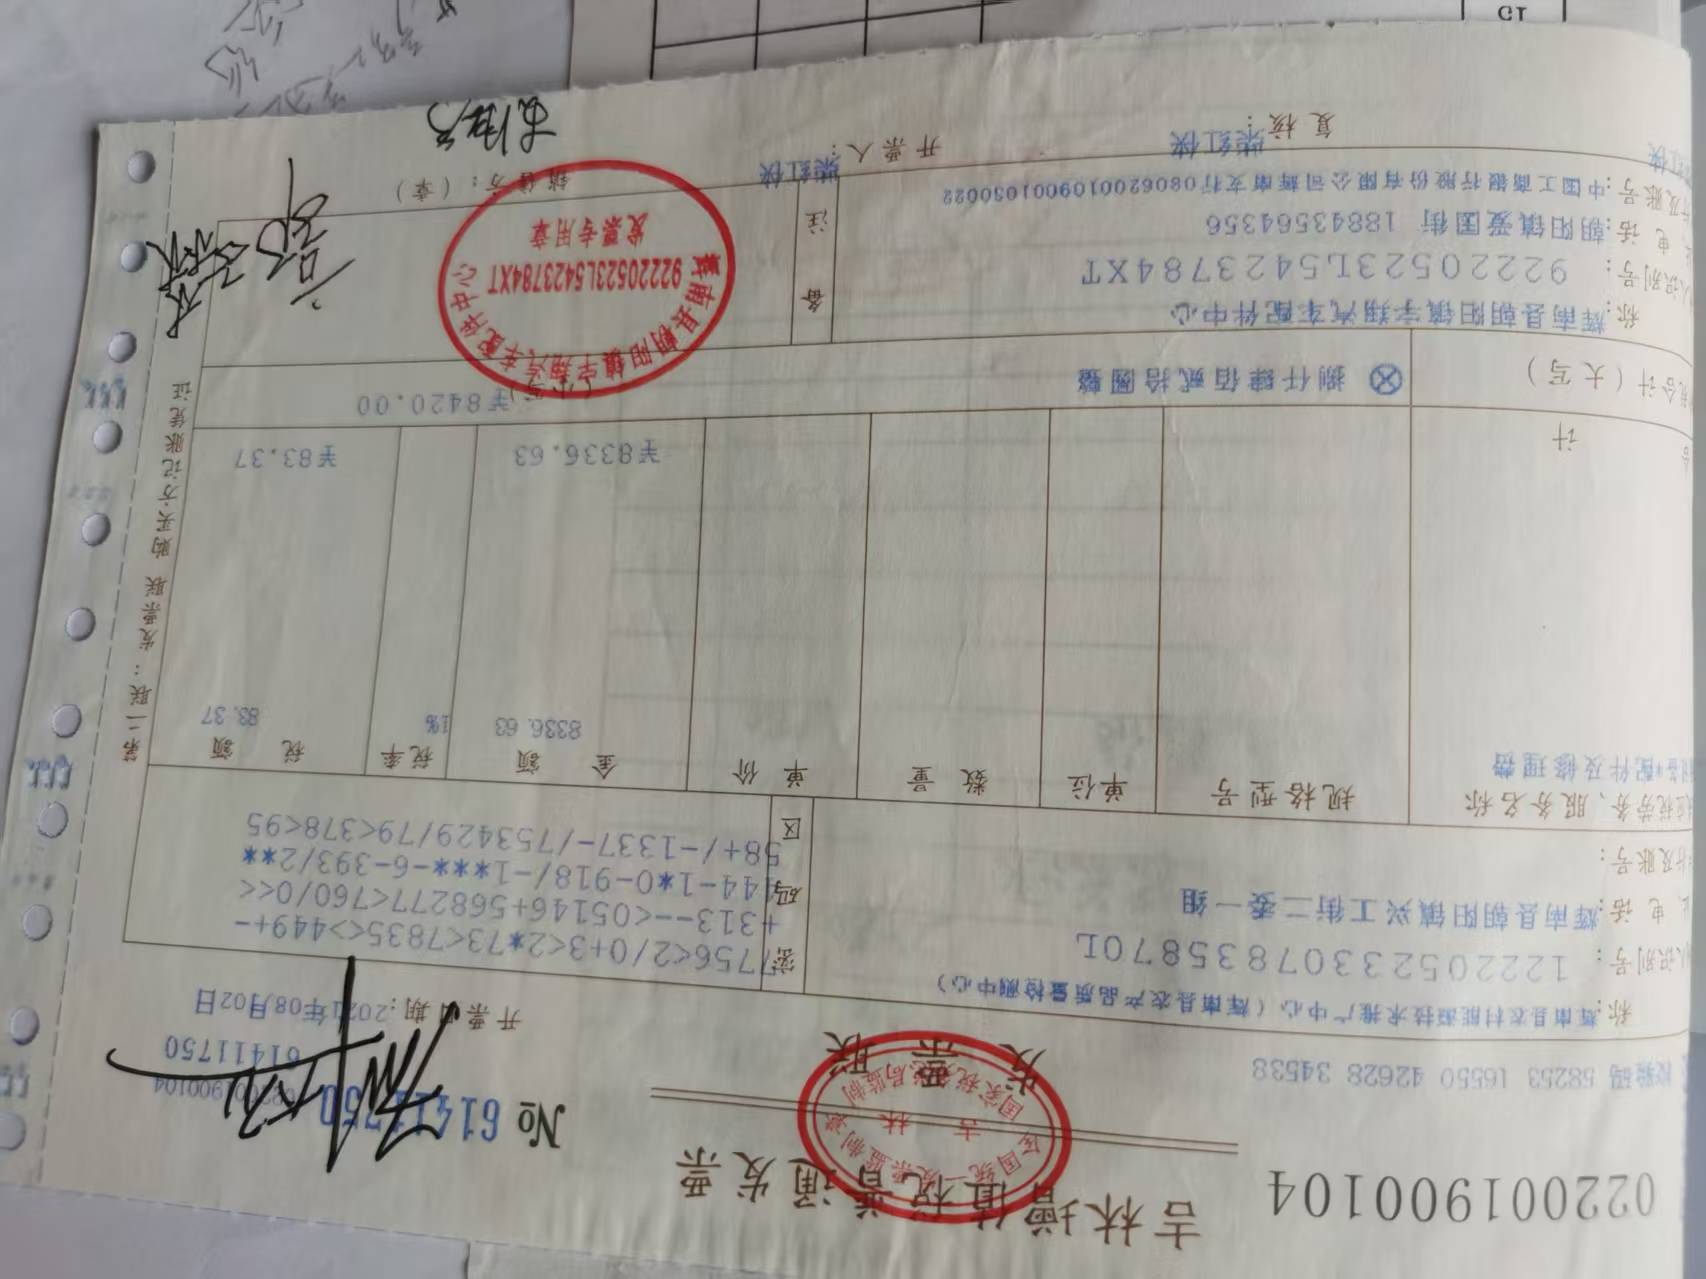 022001900104
吉林增值税普通发票
发票联
№ 61411750
022001900104
61411750
校验码 58253 16550 42628 34538
开票日期:2021年08月02日
称:辉南县农村能源技术推广中心(辉南县农产品质量检测中心)
人识别号:12220523307835870L
电话:辉南县朝阳镇兴工街二委一组
行及账号:
密码区
7756<2/0+3<2*73<7835<>449+-
+313--<05146+568277<760/0<<
144-1*0-918/-1***-6-393/2**
58+/-1337-/753429/79<378<95
应税劳务、服务名称 规格型号 单位 数量 单价 金额 税率 税额
配件及修理费 8336.63 1% 83.37
合计 ¥8336.63 ¥83.37
税合计(大写) ⊗捌仟肆佰贰拾圆整 (小写)¥8420.00
称:辉南县朝阳镇宇翔汽车配件中心
人识别号:92220523L5423784XT
电话:朝阳镇爱国街 18843564356
行及账号:中国工商银行股份有限公司辉南支行0806200109001050022
备注
复核:柴红侠 开票人:柴红侠 销售方:(章)
第二联:发票联 购买方记账凭证
全国统一发票监制章
吉林
国家税务总局监制
辉南县朝阳镇宇翔汽车配件中心
92220523L5423784XT
发票专用章